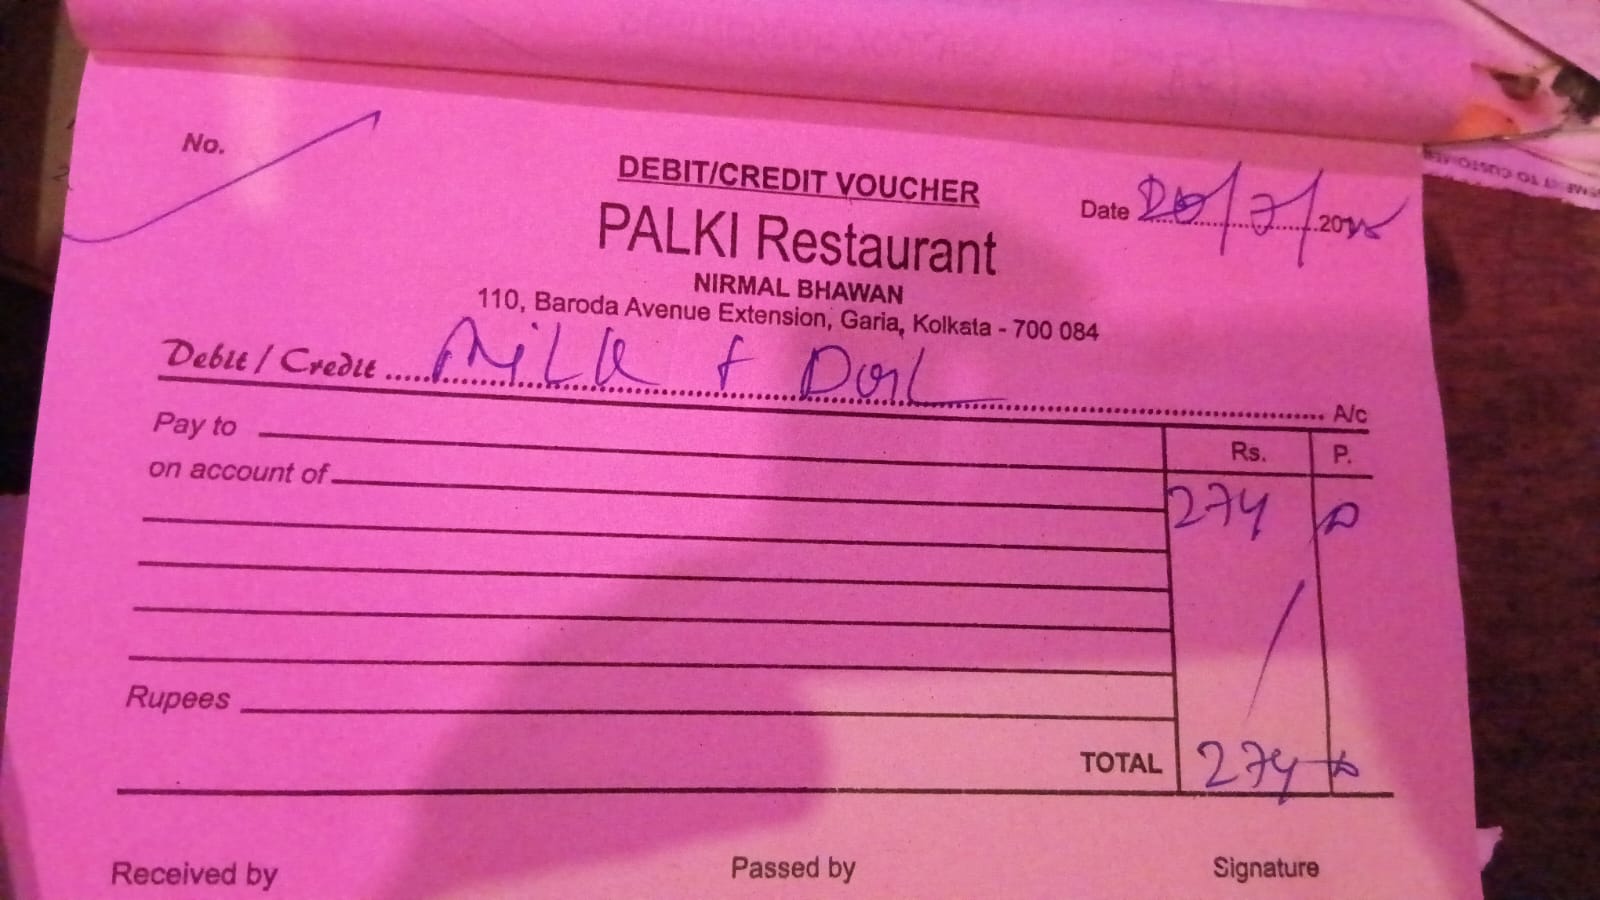 No.
DEBIT/CREDIT VOUCHER
Date 20/7/2025
PALKI Restaurant
NIRMAL BHAWAN
110, Baroda Avenue Extension, Garia, Kolkata - 700 084
Debit / Credit Milk + Doi A/c
Pay to Rs. P.
on account of 274
Rupees
TOTAL 274
Received by Passed by Signature